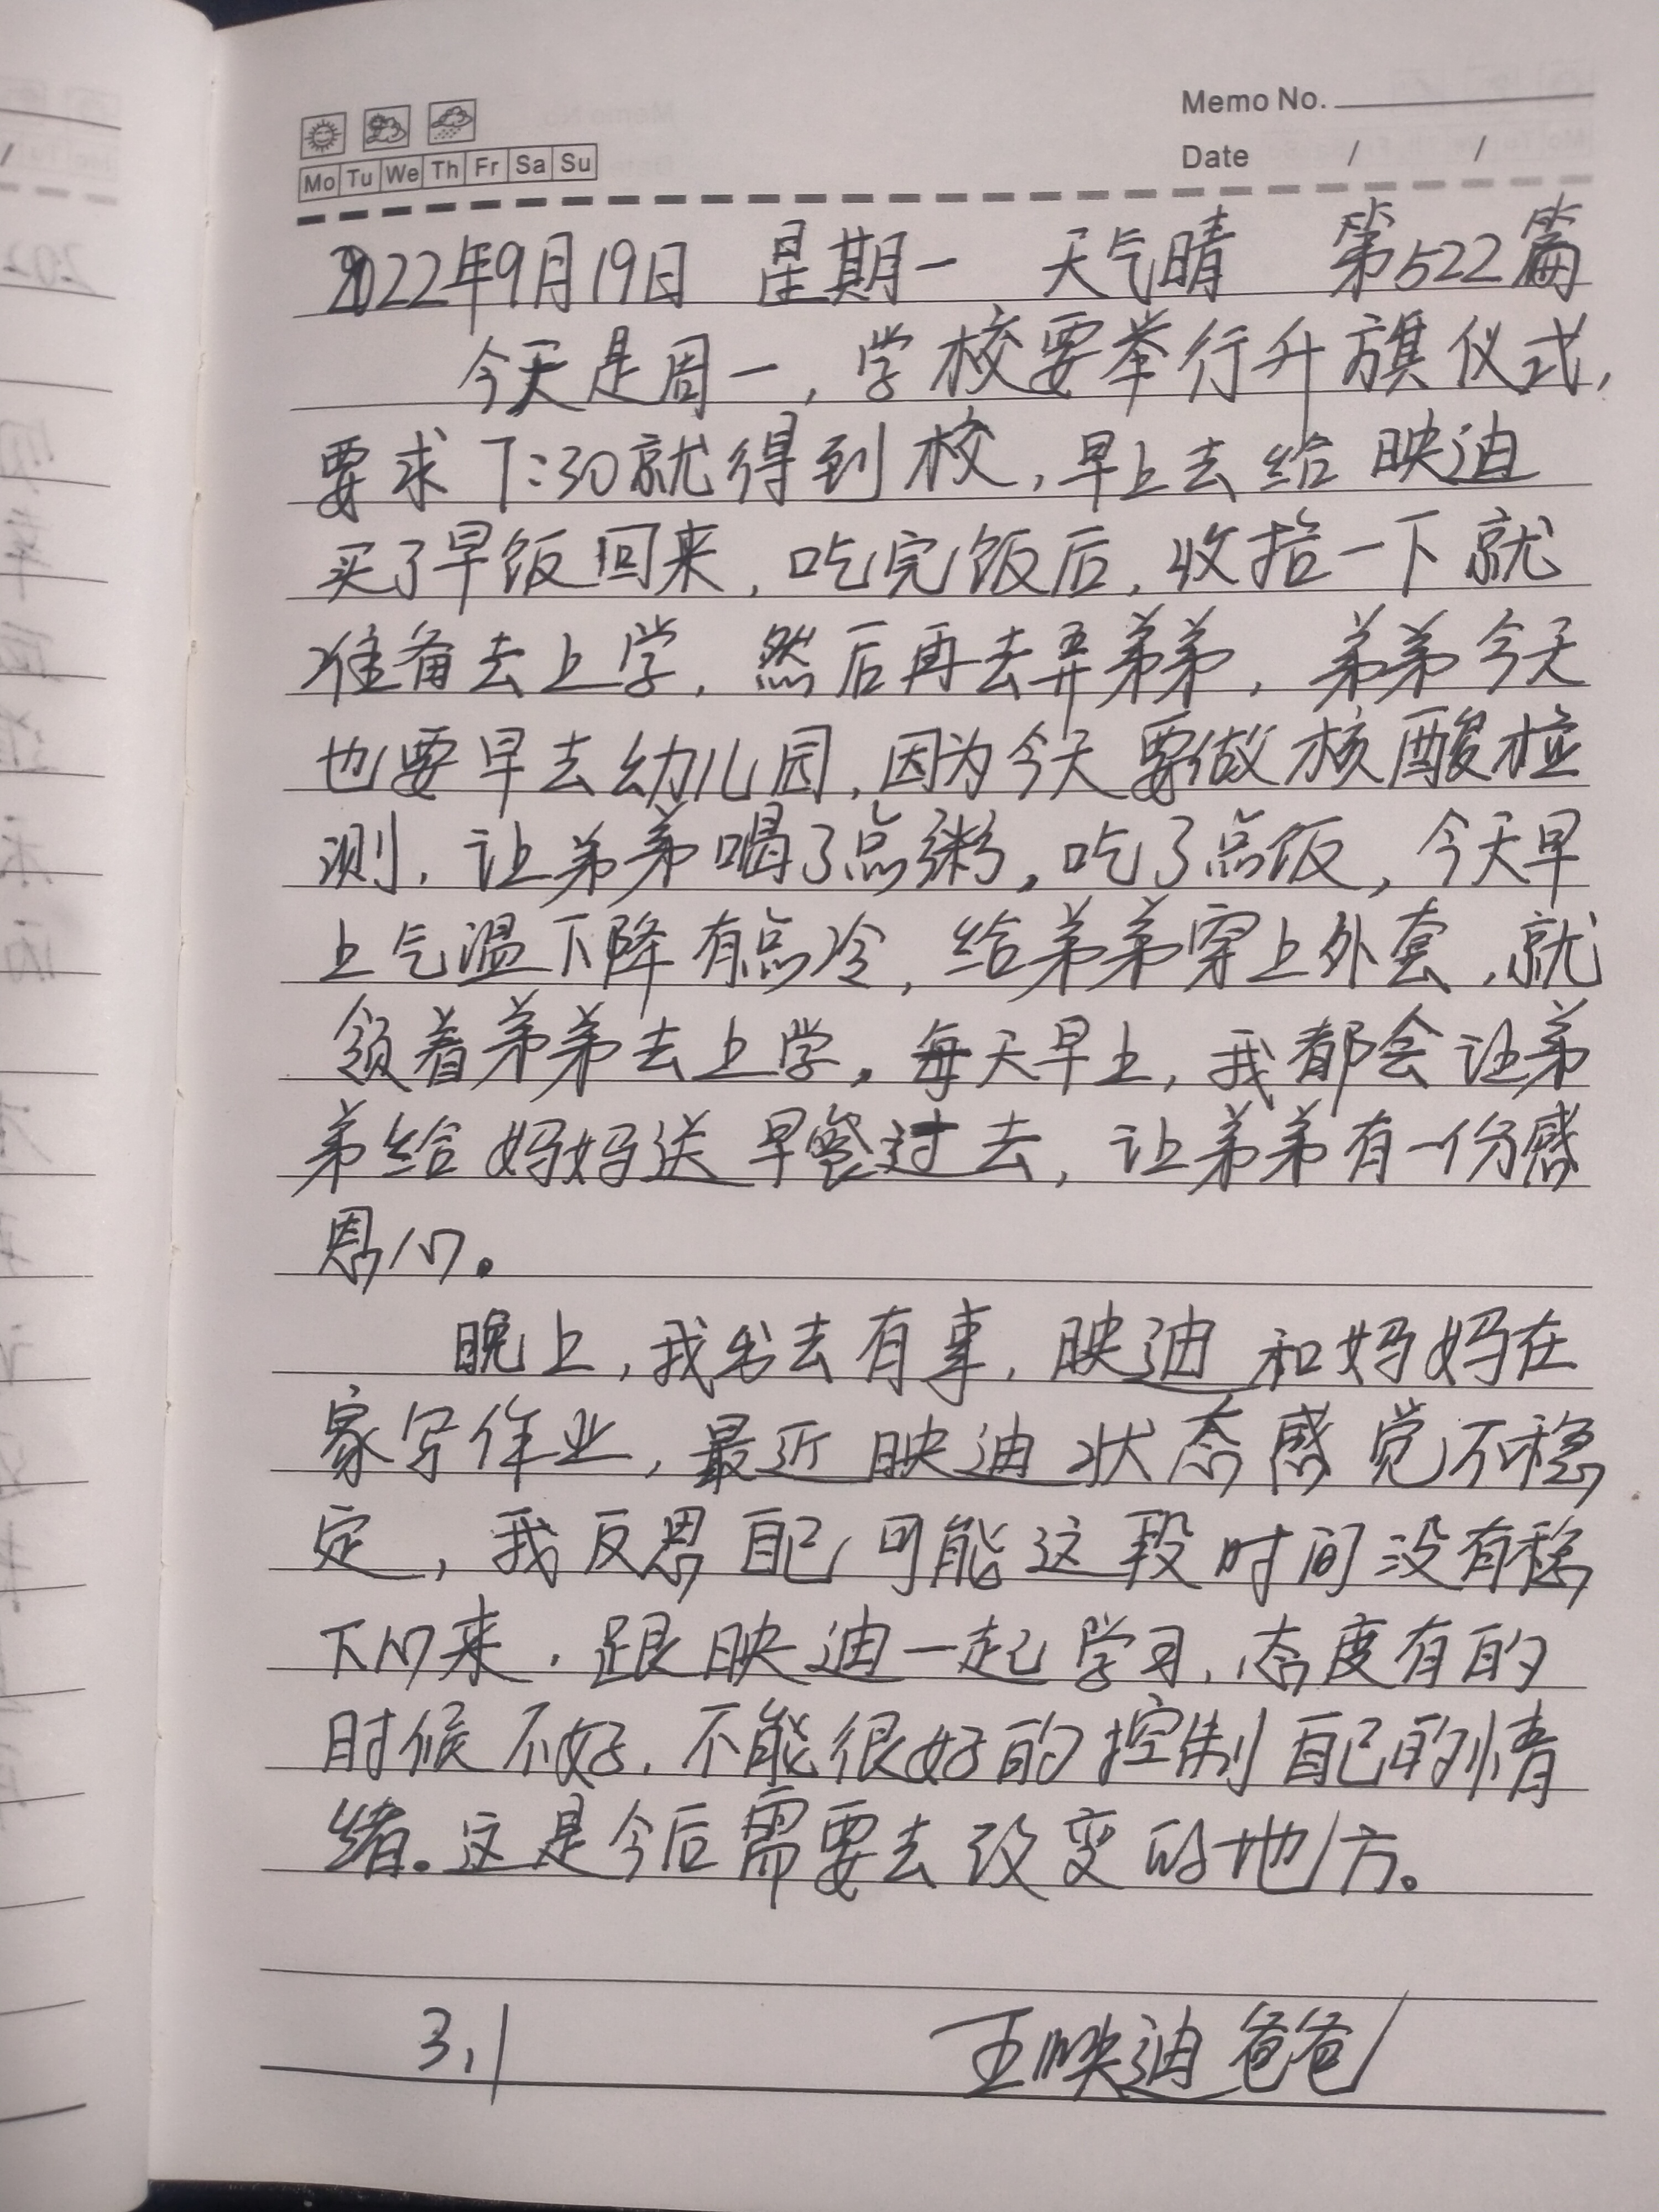 Memo No.
Mo Tu We Th Fr Sa Su
Date / /
2022年9月19日 星期一 天气晴 第522篇
今天是周一，学校要举行升旗仪式，
要求7:30就得到校，早上去给映迪
买了早饭回来，吃完饭后，收拾一下就
准备去上学，然后再去弄弟弟，弟弟今天
也要早去幼儿园，因为今天要做核酸检
测，让弟弟喝了点粥，吃了点饭，今天早
上气温下降有点冷，给弟弟穿上外套，就
领着弟弟去上学。每天早上，我都会让弟
弟给妈妈送早餐过去，让弟弟有一份感
恩心。
晚上，我出去有事，映迪和妈妈在
家写作业，最近映迪状态感觉不稳
定，我反思自己可能这段时间没有稳
下心来，跟映迪一起学习，态度有的
时候不好，不能很好的控制自己的情
绪。这是今后需要去改变的地方。
3.1 王映迪爸爸